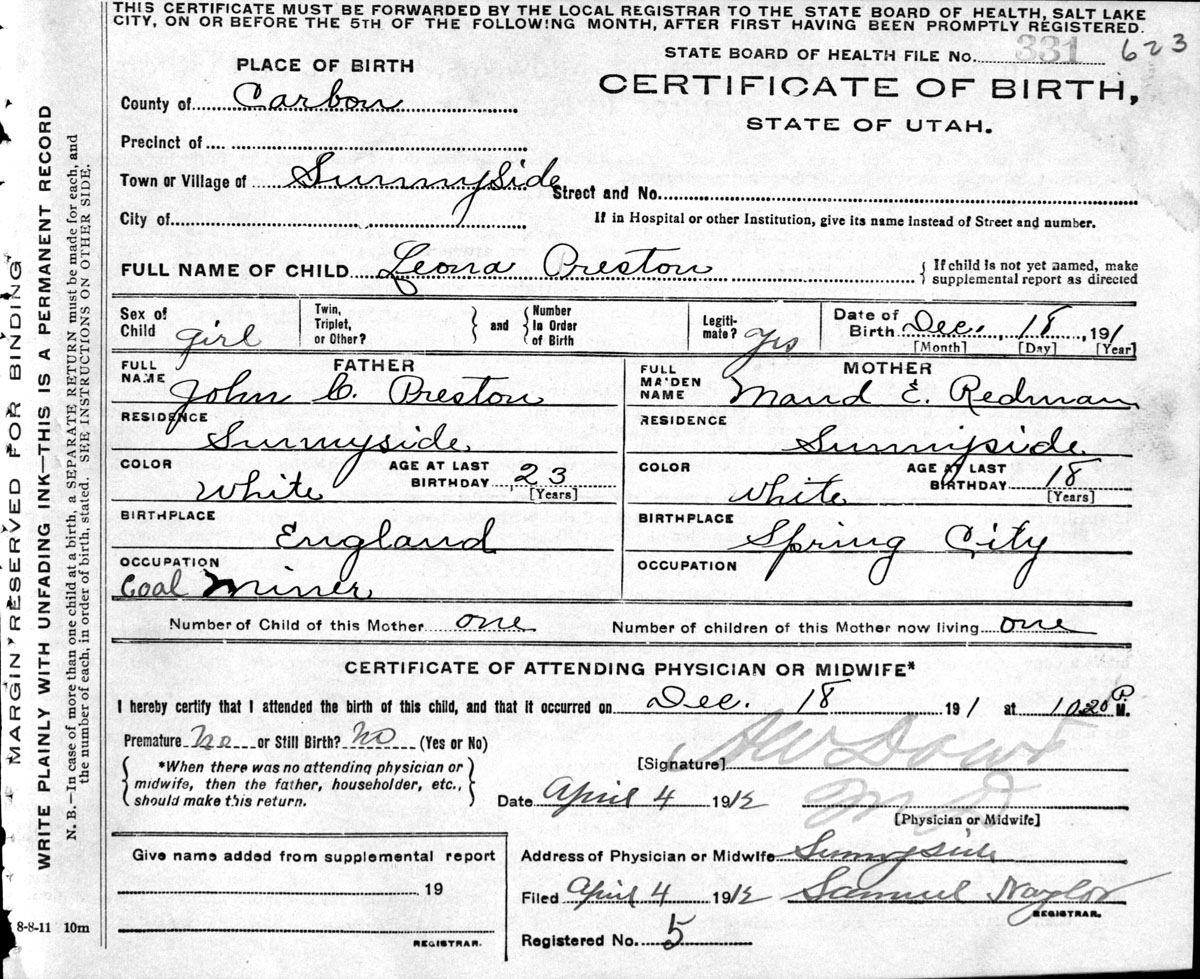 THIS CERTIFICATE MUST BE FORWARDED BY THE LOCAL REGISTRAR TO THE STATE BOARD OF HEALTH, SALT LAKE
CITY, ON OR BEFORE THE 5TH OF THE FOLLOWING MONTH, AFTER FIRST HAVING BEEN PROMPTLY REGISTERED.
STATE BOARD OF HEALTH FILE No. 331 623
PLACE OF BIRTH
CERTIFICATE OF BIRTH,
STATE OF UTAH.
County of Carbon
Precinct of
Town or Village of Sunnyside Street and No.
City of
If in Hospital or other Institution, give its name instead of Street and number.
FULL NAME OF CHILD Leona Preston { If child is not yet named, make
supplemental report as directed
Sex of Child girl
Twin, Triplet, or Other? } and { Number In Order of Birth
Legiti-mate? yes
Date of Birth Dec. 18, 191 1
[Month] [Day] [Year]
FATHER
FULL NAME John C. Preston
RESIDENCE
Sunnyside
COLOR White AGE AT LAST BIRTHDAY 23 [Years]
BIRTHPLACE
England
OCCUPATION
Coal Miner
MOTHER
FULL MA'DEN NAME Maud E. Redman
RESIDENCE
Sunnyside
COLOR White AGE AT LAST BIRTHDAY 18 [Years]
BIRTHPLACE
Spring City
OCCUPATION
Number of Child of this Mother one Number of children of this Mother now living one
CERTIFICATE OF ATTENDING PHYSICIAN OR MIDWIFE*
I hereby certify that I attended the birth of this child, and that it occurred on Dec. 18 191 1 at 10.20 P. M.
Premature No or Still Birth? No (Yes or No)
*When there was no attending physician or
midwife, then the father, householder, etc.,
should make this return.
[Signature]
Date April 4 1912 M D
[Physician or Midwife]
Give name added from supplemental report
19
REGISTRAR.
Address of Physician or Midwife Sunnyside
Filed April 4 1912 Samuel Naylor
REGISTRAR.
Registered No. 5
8-8-11 10m
MARGIN RESERVED FOR BINDING
WRITE PLAINLY WITH UNFADING INK—THIS IS A PERMANENT RECORD
N. B.—In case of more than one child at a birth, a SEPARATE RETURN must be made for each, and
the number of each, in order of birth, stated. SEE INSTRUCTIONS ON OTHER SIDE.